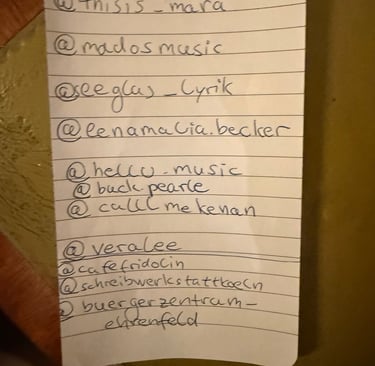 @thisis_mara
@madosmusic
@seeglas_lyrik
@eenamalia.becker
@hello.music
@buckpearle
@calllmekenan
@veralee
@cafefridolin
@schreibwerkstattkoeln
@buergerzentrum-
ehrenfeld